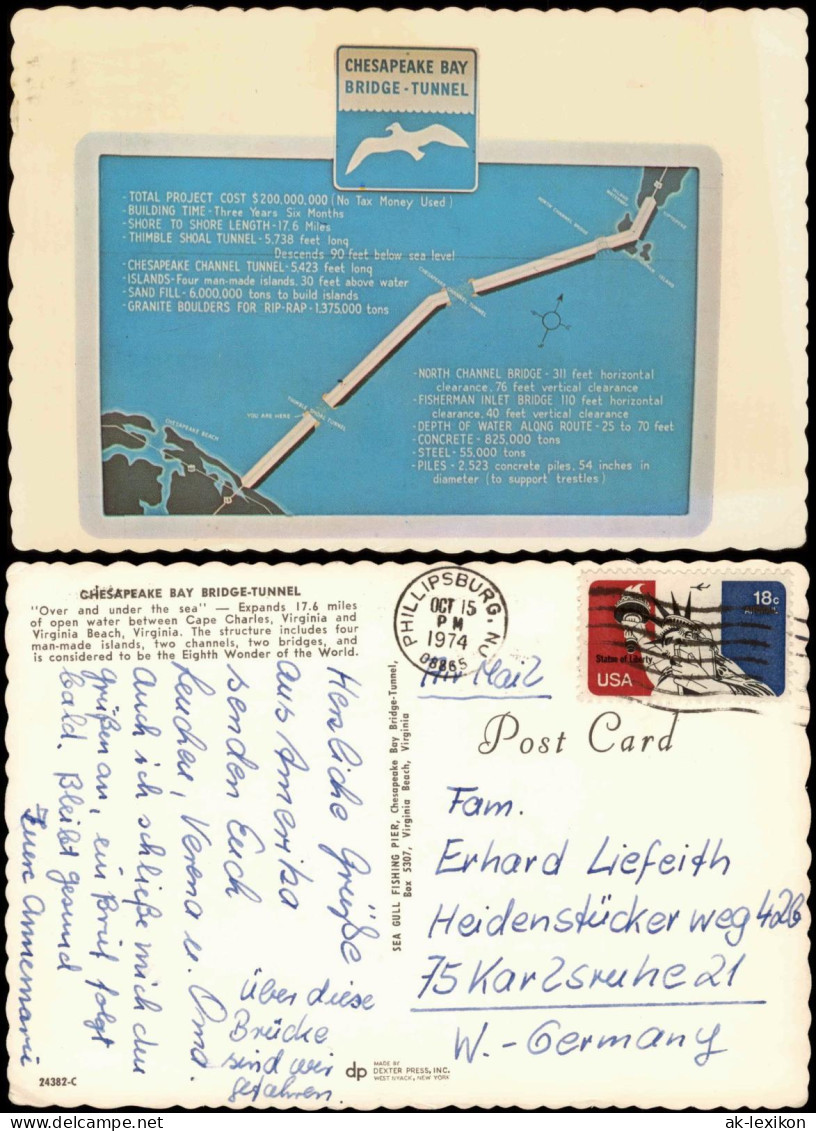 CHESAPEAKE BAY
BRIDGE - TUNNEL
- TOTAL PROJECT COST $200,000,000 (No Tax Money Used)
- BUILDING TIME - Three Years Six Months
- SHORE TO SHORE LENGTH - 17.6 Miles
- THIMBLE SHOAL TUNNEL - 5,738 feet long
Descends 90 feet below sea level
- CHESAPEAKE CHANNEL TUNNEL - 5,423 feet long
- ISLANDS - Four man-made islands, 30 feet above water
- SAND FILL - 6,000,000 tons to build islands
- GRANITE BOULDERS FOR RIP-RAP - 1,375,000 tons
NORTH CHANNEL BRIDGE
CHESAPEAKE CHANNEL TUNNEL
- NORTH CHANNEL BRIDGE - 311 feet horizontal
clearance, 76 feet vertical clearance
- FISHERMAN INLET BRIDGE 110 feet horizontal
clearance, 40 feet vertical clearance
- DEPTH OF WATER ALONG ROUTE - 25 to 70 feet
- CONCRETE - 825,000 tons
- STEEL - 55,000 tons
- PILES - 2,523 concrete piles, 54 inches in
diameter (to support trestles)
THIMBLE SHOAL TUNNEL
YOU ARE HERE
CHESAPEAKE BEACH
CHESAPEAKE BAY BRIDGE-TUNNEL
"Over and under the sea" — Expands 17.6 miles
of open water between Cape Charles, Virginia and
Virginia Beach, Virginia. The structure includes four
man-made islands, two channels, two bridges, and
is considered to be the Eighth Wonder of the World.
PHILLIPSBURG, NJ
OCT 15
PM
1974
08865
18c
Statue of Liberty
USA
Air Mail
Post Card
Herzliche Grüße
aus Amerika
senden Euch
Verena u. Oma.
Auch ich schließe mich den
Grüßen an, ein Brief folgt
bald. Bleibt gesund
Eure Annemarie
über diese
Brücke
sind wir
gefahren.
SEA GULL FISHING PIER, Chesapeake Bay Bridge-Tunnel,
Box 5307, Virginia Beach, Virginia
Fam.
Erhard Liefeith
Heidenstückerweg 42b
75 Karlsruhe 21
W.-Germany
24382-C
dp
MADE BY
DEXTER PRESS, INC.
WEST NYACK, NEW YORK
ak-lexikon